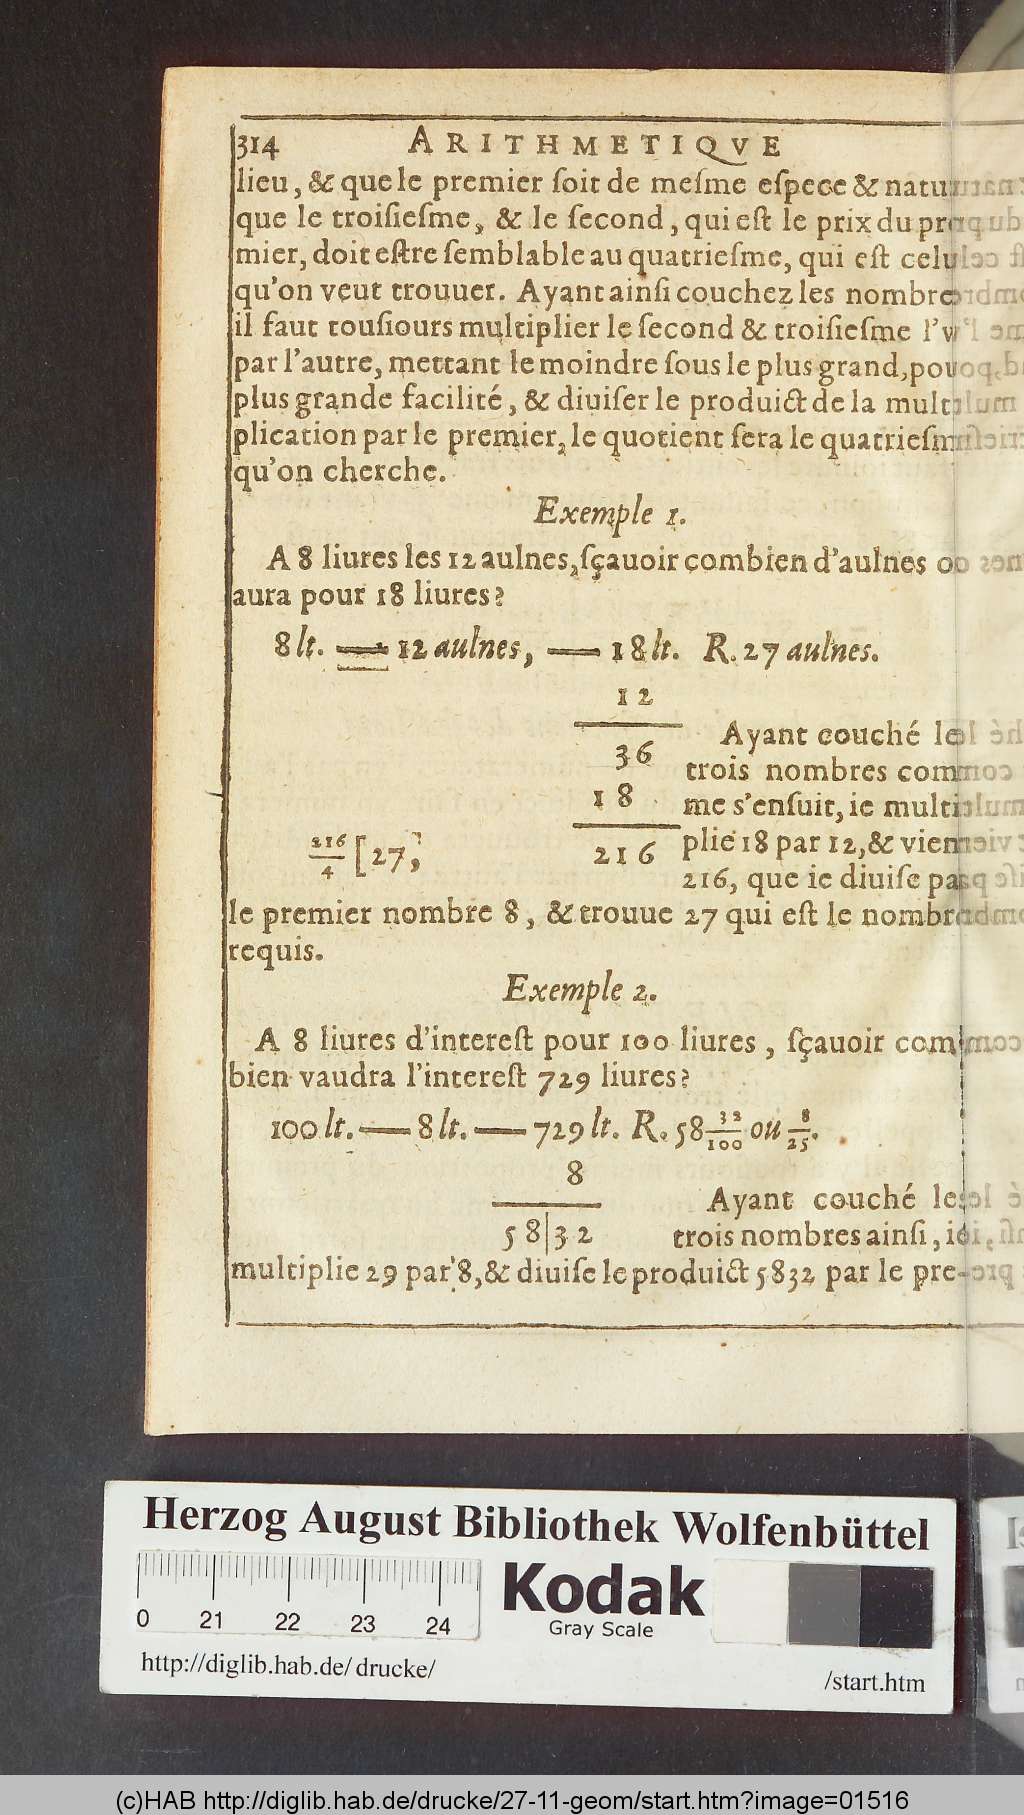 314 ARITHMETIQVE
lieu, & que le premier ſoit de meſme eſpece & natu
que le troiſieſme, & le ſecond, qui eſt le prix du pre
mier, doit eſtre ſemblable au quatrieſme, qui eſt celu
qu'on veut trouuer. Ayant ainſi couchez les nombre
il faut touſiours multiplier le ſecond & troiſieſme l'v
par l'autre, mettant le moindre ſous le plus grand, pou
plus grande facilité, & diuiſer le produict de la mult
plication par le premier, le quotient ſera le quatrieſm
qu'on cherche.
Exemple 1.
A 8 liures les 12 aulnes, ſçauoir combien d'aulnes o
aura pour 18 liures?
8 lt. — 12 aulnes, — 18 lt. R. 27 aulnes.
12
Ayant couché le
36
trois nombres com
18
me s'enſuit, ie multi
216/4 [27;
216
plie 18 par 12, & vien
216, que ie diuiſe pa
le premier nombre 8, & trouue 27 qui eſt le nombre
requis.
Exemple 2.
A 8 liures d'intereſt pour 100 liures, ſçauoir com
bien vaudra l'intereſt 729 liures?
100 lt. — 8 lt. — 729 lt. R. 58 32/100 ou 8/25.
8
Ayant couché le
58|32
trois nombres ainſi, i
multiplie 29 par 8, & diuiſe le produict 5832 par le pre-
Herzog August Bibliothek Wolfenbüttel
0 21 22 23 24
Kodak
Gray Scale
http://diglib.hab.de/drucke/
/start.htm
(c)HAB http://diglib.hab.de/drucke/27-11-geom/start.htm?image=01516